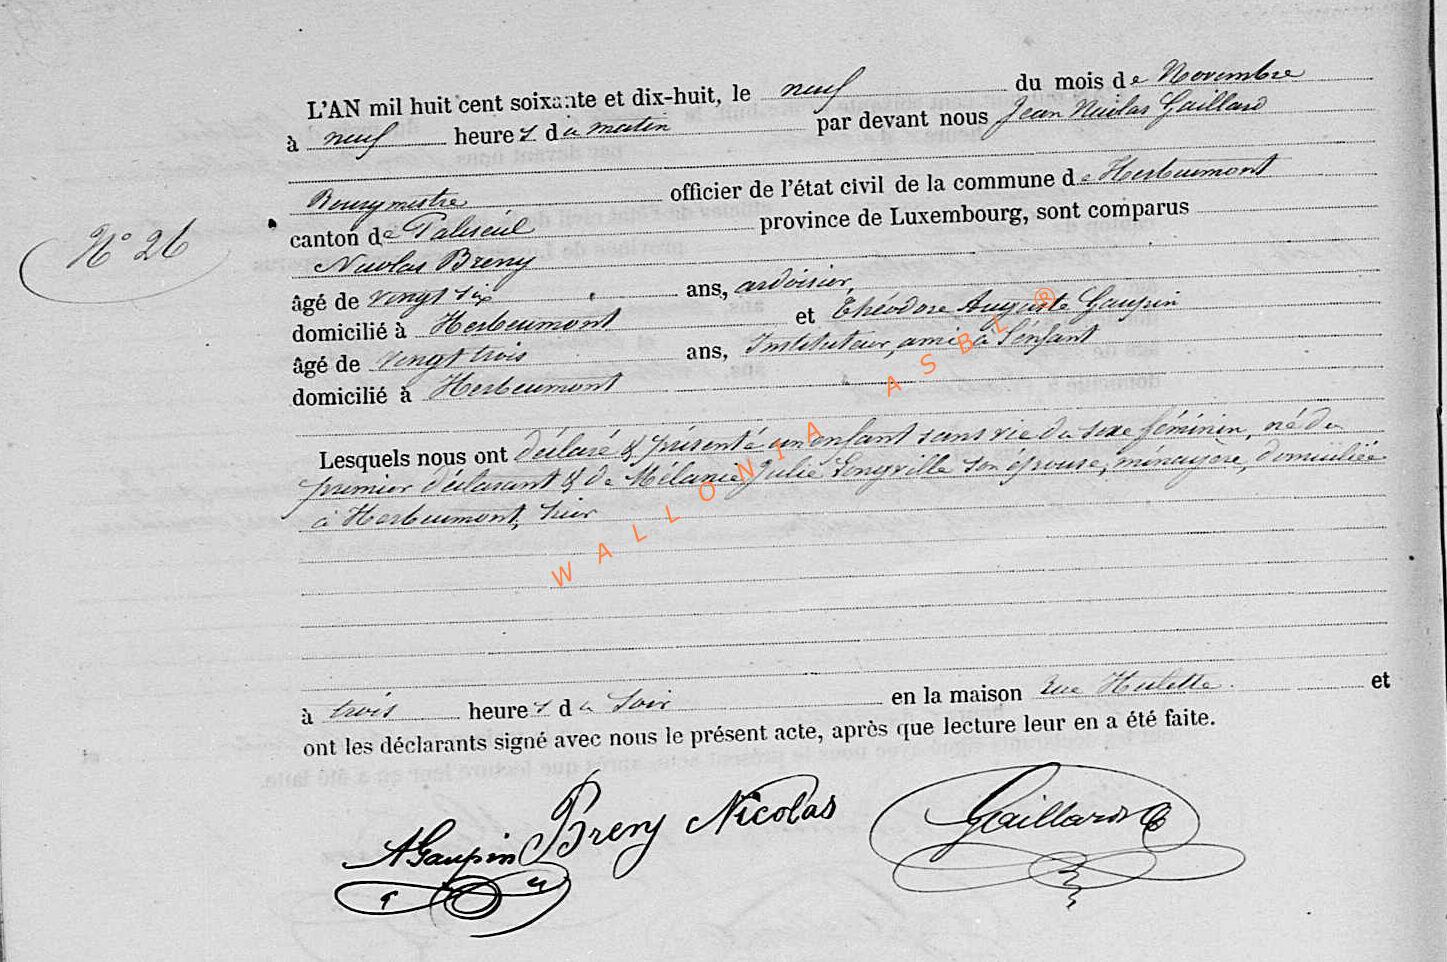 L'AN mil huit cent soixante et dix-huit, le neuf du mois de Novembre
à neuf heures du matin par devant nous Jean Nicolas Gaillard
Bourgmestre officier de l'état civil de la commune de Herbeumont
canton de Paliseul province de Luxembourg, sont comparus
Nicolas Breny
âgé de vingt six ans, ardoisier,
domicilié à Herbeumont et Théodore Auguste Gaupin
âgé de vingt trois ans, Instituteur, ami à l'enfant
domicilié à Herbeumont
N° 26
Lesquels nous ont déclaré & présenté un enfant sans vie du sexe féminin, né du
premier déclarant & de Mélanie Julie Longville son épouse, ménagère, domiciliée
à Herbeumont, hier
à trois heures du soir en la maison rue Hulette et
ont les déclarants signé avec nous le présent acte, après que lecture leur en a été faite.
AGaupin Breny Nicolas Gaillard
WALLONIA ASBL ®